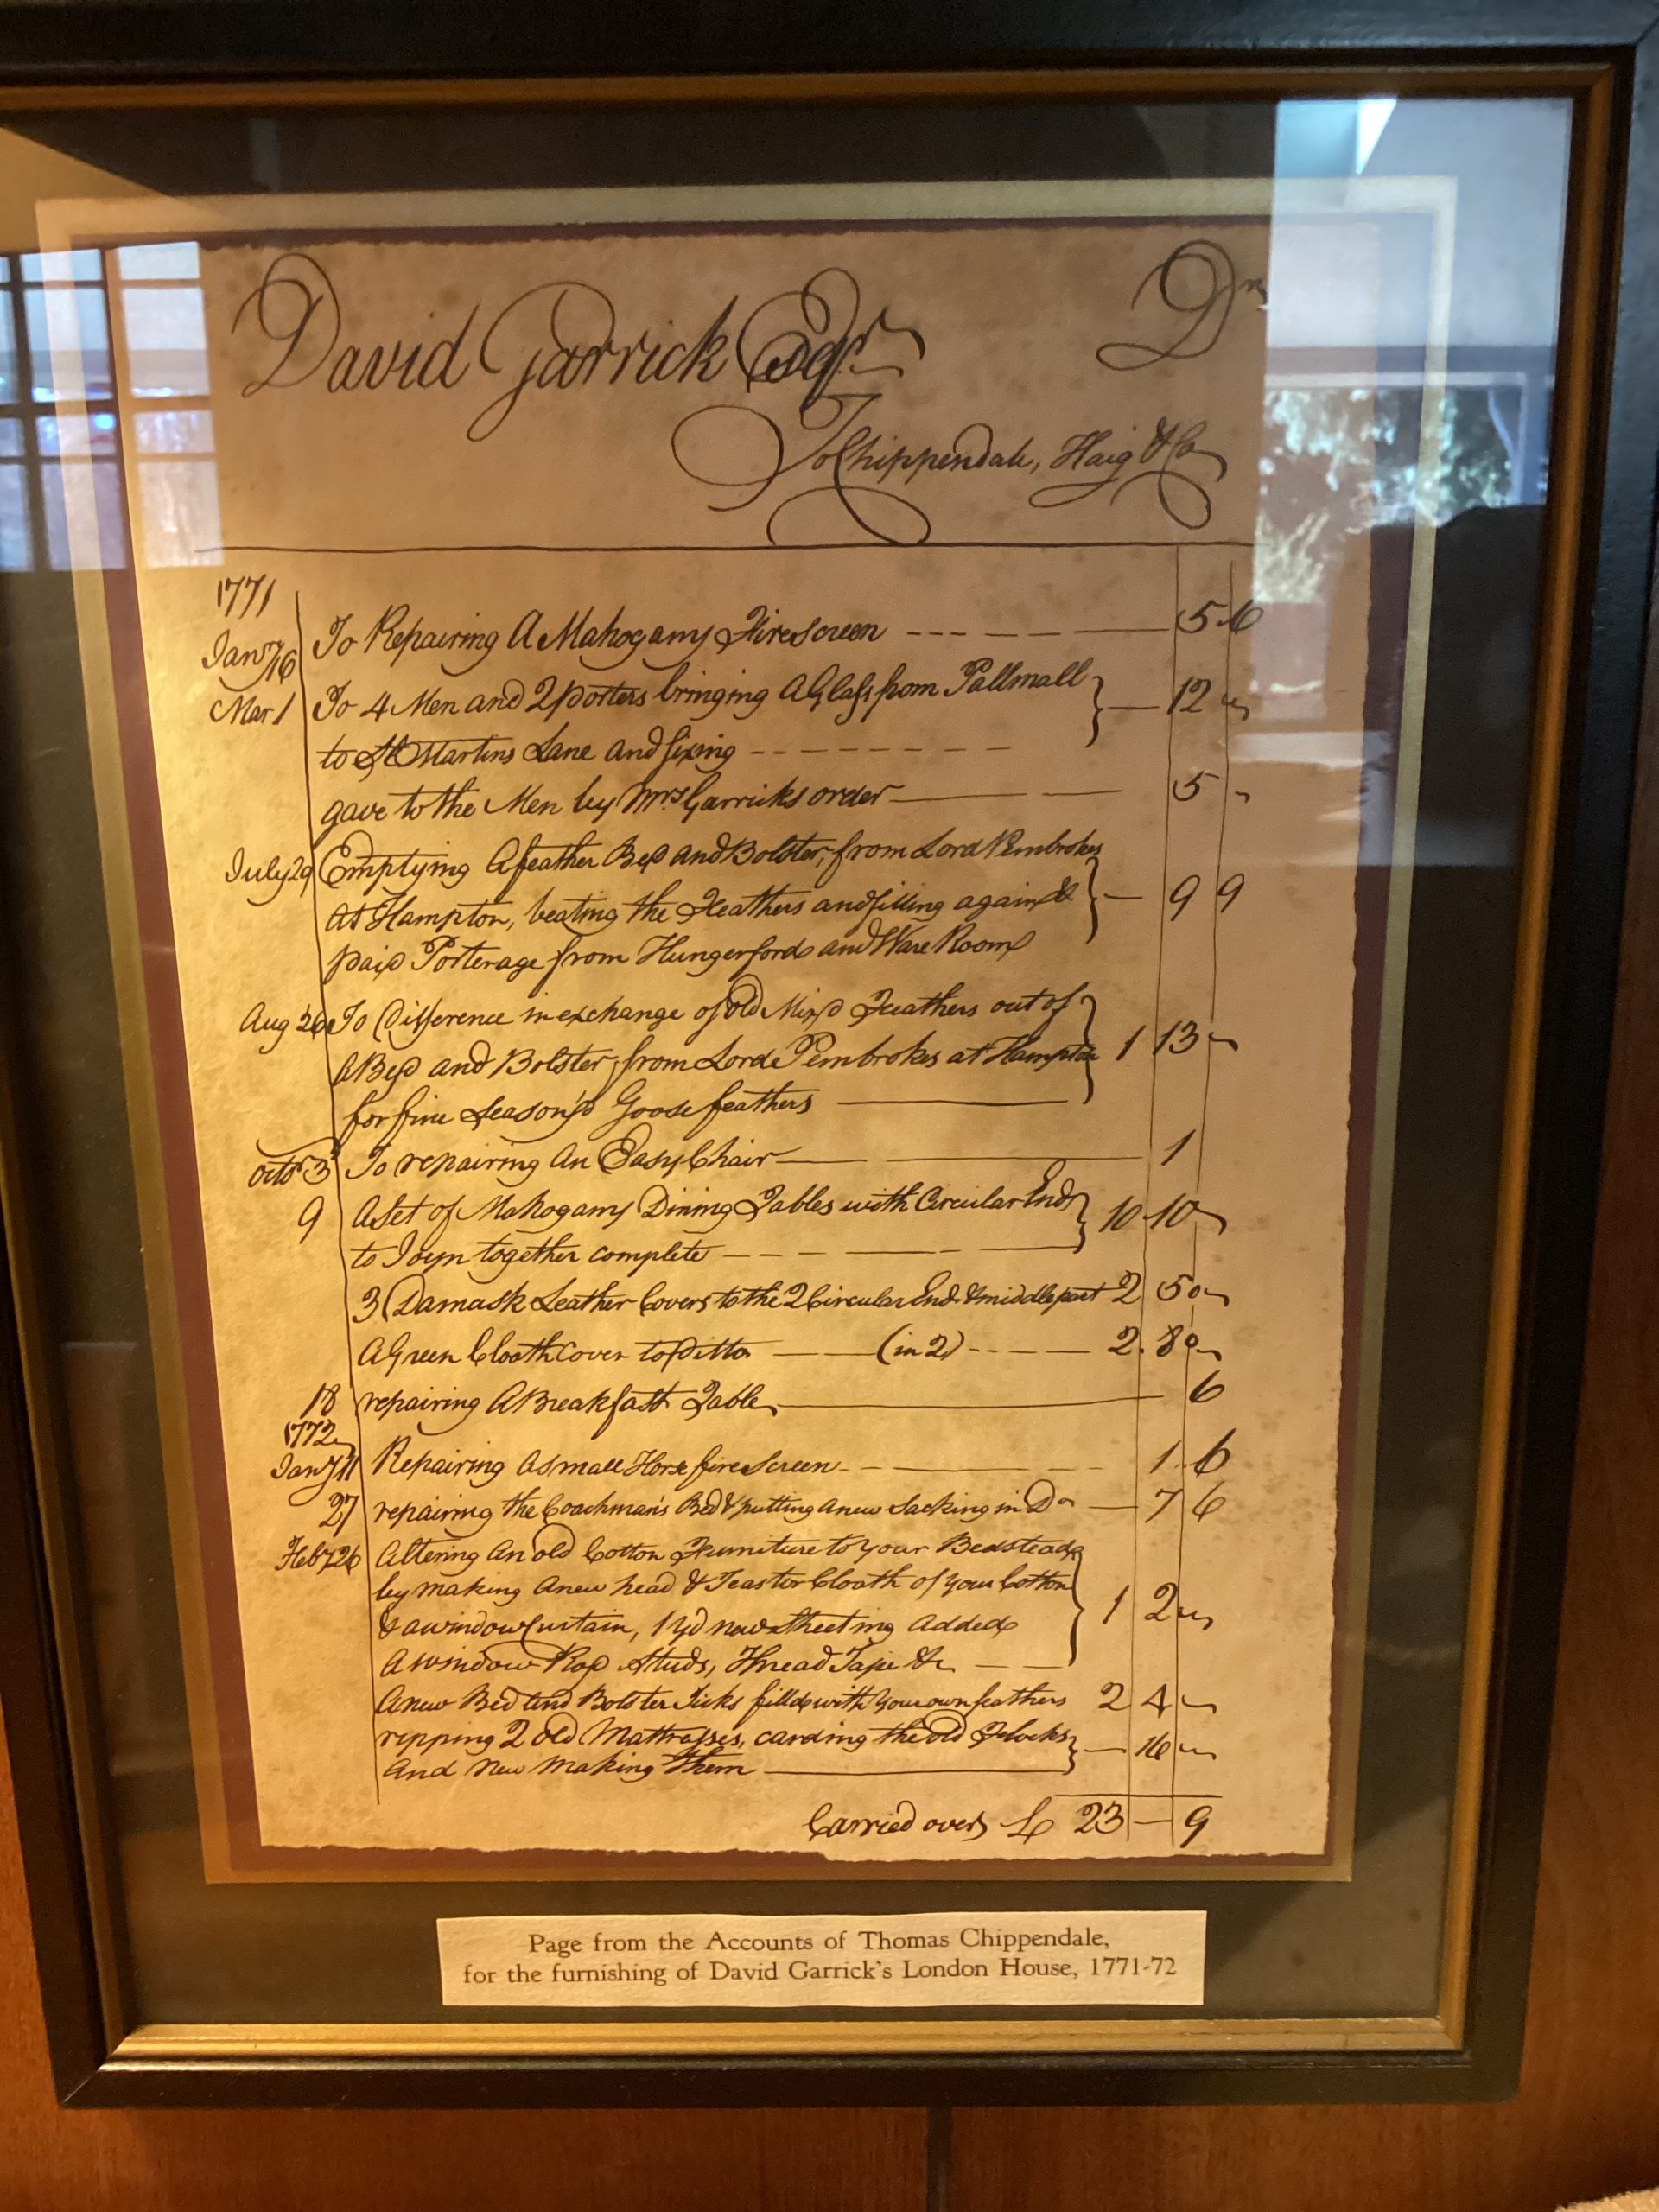 David Garrick Esqr. Dr.
To Chippendale, Haig & Co
1771
Jany 16 To Repairing A Mahogany Fire Screen 5 6
Mar 1 To 4 Men and 2 porters bringing A Glass from Pallmall
to St Martins Lane and fixing 12 „
gave to the Men by Mrs Garricks order 5 „
July 29 Emptying A feather Bed and Bolster, from Lord Pembrokes
At Hampton, beating the Feathers and filling again &
paid Porterage from Hungerford and Ware Room 9 9
Aug 26 To Difference in exchange of old Mix'd Feathers out of
A Bed and Bolster, from Lord Pembrokes at Hampton
for fine Season'd Goose feathers 1 13 „
Octr 3 To repairing An Easy Chair 1
9 A Set of Mahogany Dining Tables with Circular Ends
to Joyn together complete 10 10 „
3 Damask Leather Covers to the 2 Circular Ends & middle part 2 5 0
A Green Cloath Cover to Ditto (in 2) 2. 8 0
18 repairing A Breakfast Table 6
1772
Jany 11 Repairing A small Horse fire Screen 1. 6
27 repairing the Coachman's Bed & putting A new Sacking in Do 7 6
Feby 26 Altering An old Cotton Furniture to your Bedstead
by making A new head & Teaster Cloath of your Cotton
& a window Curtain, 1 yd new Sheeting Added
A window Rod Studs, Thread Tape &c 1 2 „
A new Bed and Bolster Ticks fill'd with your own feathers 2 4 „
ripping 2 old Mattrasses, carding the old Flocks
And New Making them 16 „
Carried over £ 23 — 9
Page from the Accounts of Thomas Chippendale,
for the furnishing of David Garrick's London House, 1771-72